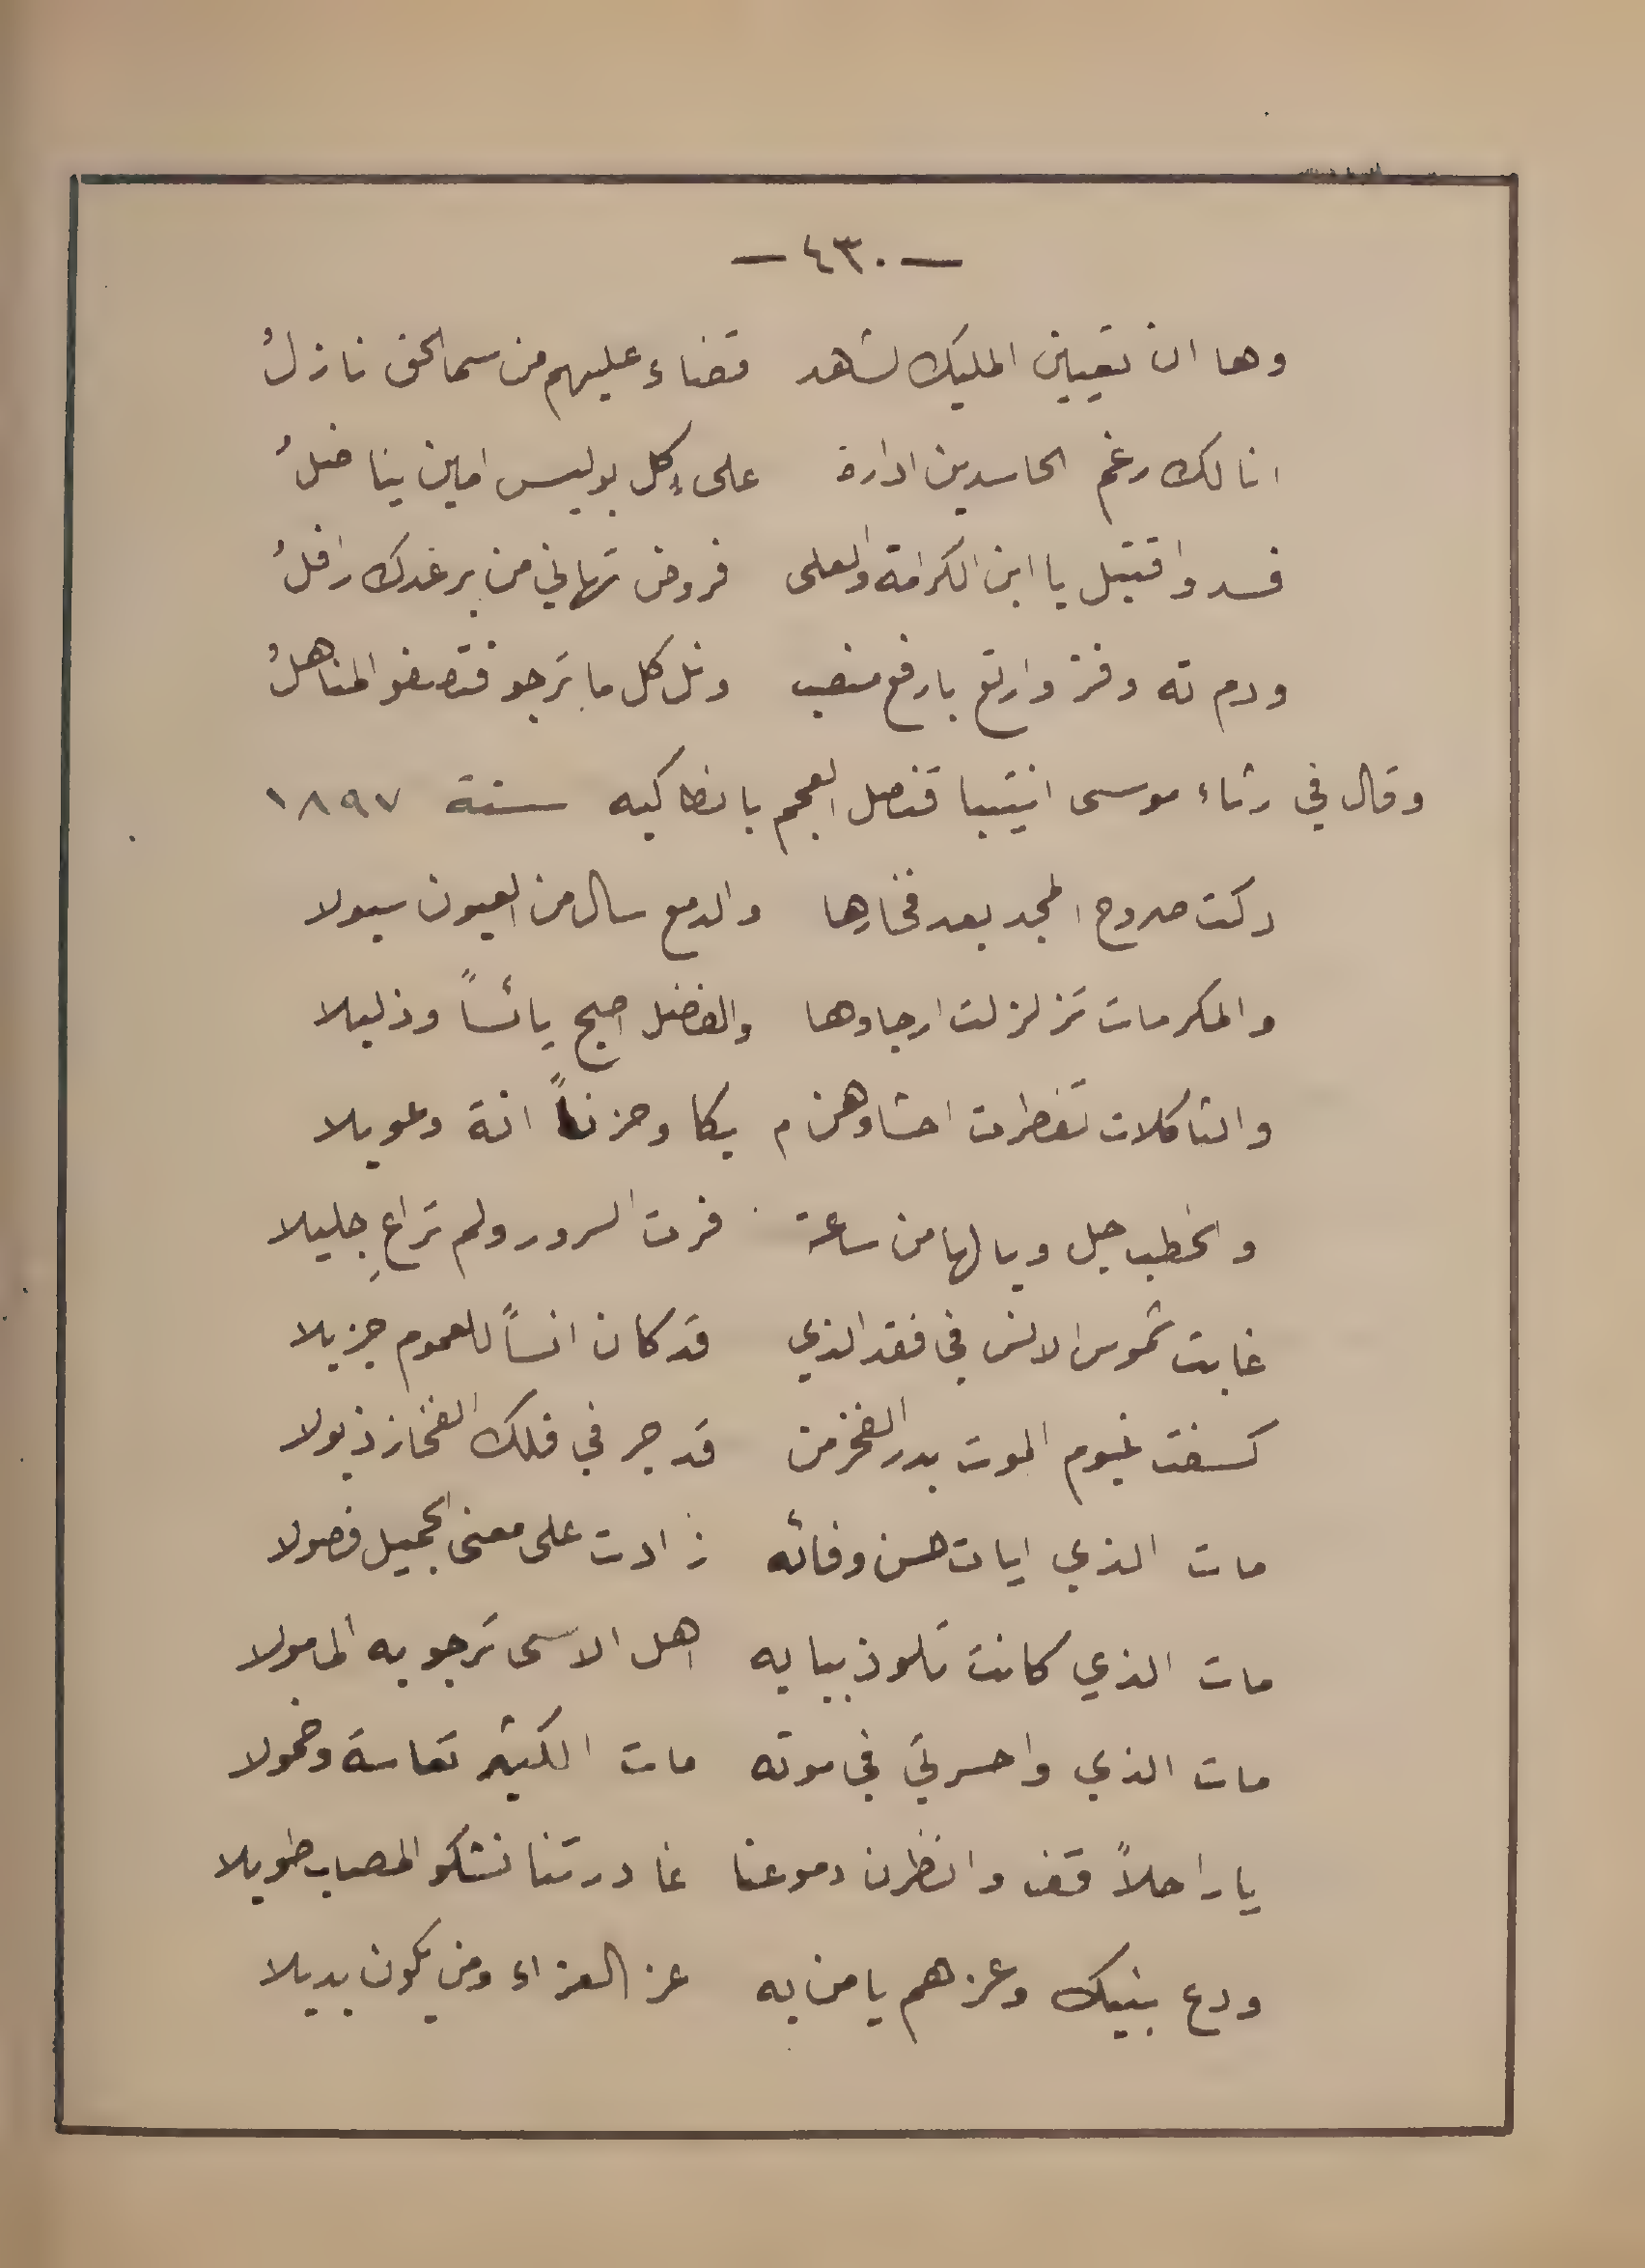 — ٤٣٠ —
وها ان تعيين المليك لشاهد قضاء عليهم من سما الحق نازلُ
انالك رغم الحاسدين ادارة على كل بوليس امين يناضلُ
فسد واقتبل يا ابن الكرامة والعلى فروض تهاني من برغدك رافلُ
ودم ته وفز وارتع بارفع منصب ونل كل ما ترجو فتصفو المناهلُ
وقال في رثاء موسى انتيبا قنصل العجم بانطاكيه سنة ١٨٩٧
دكت صروح المجد بعد فخارها والدمع سال من العيون سيولا
والمكرمات تزلزلت ارجاوها والفضل اصبح يائساً وذليلا
والثاكلات تفطرت احشاوهن م بكا وحزناً انة وعويلا
والخطب جل ويا لها من ساعة فرت السرور ولم تراعِ جليلا
غابت شموس الانس في فقد الذي قد كان انساً للعموم جزيلا
كسفت غيوم الموت بدر الفخر من قد جر في فلك الفخار ذيولا
مات الذي ايات حسن وفائه زادت على معنى الجميل فصولا
مات الذي كانت تلوذ ببابه اهل الاسى ترجو به المامولا
مات الذي واحسرتي في موته مات الكثير تعاسة وخمولا
يا راحلاً قف وانظرن دموعنا غادرتنا نشكو المصاب طويلا
ودع بنيك وعزهم يا من به عز العزاء ومن يكون بديلا